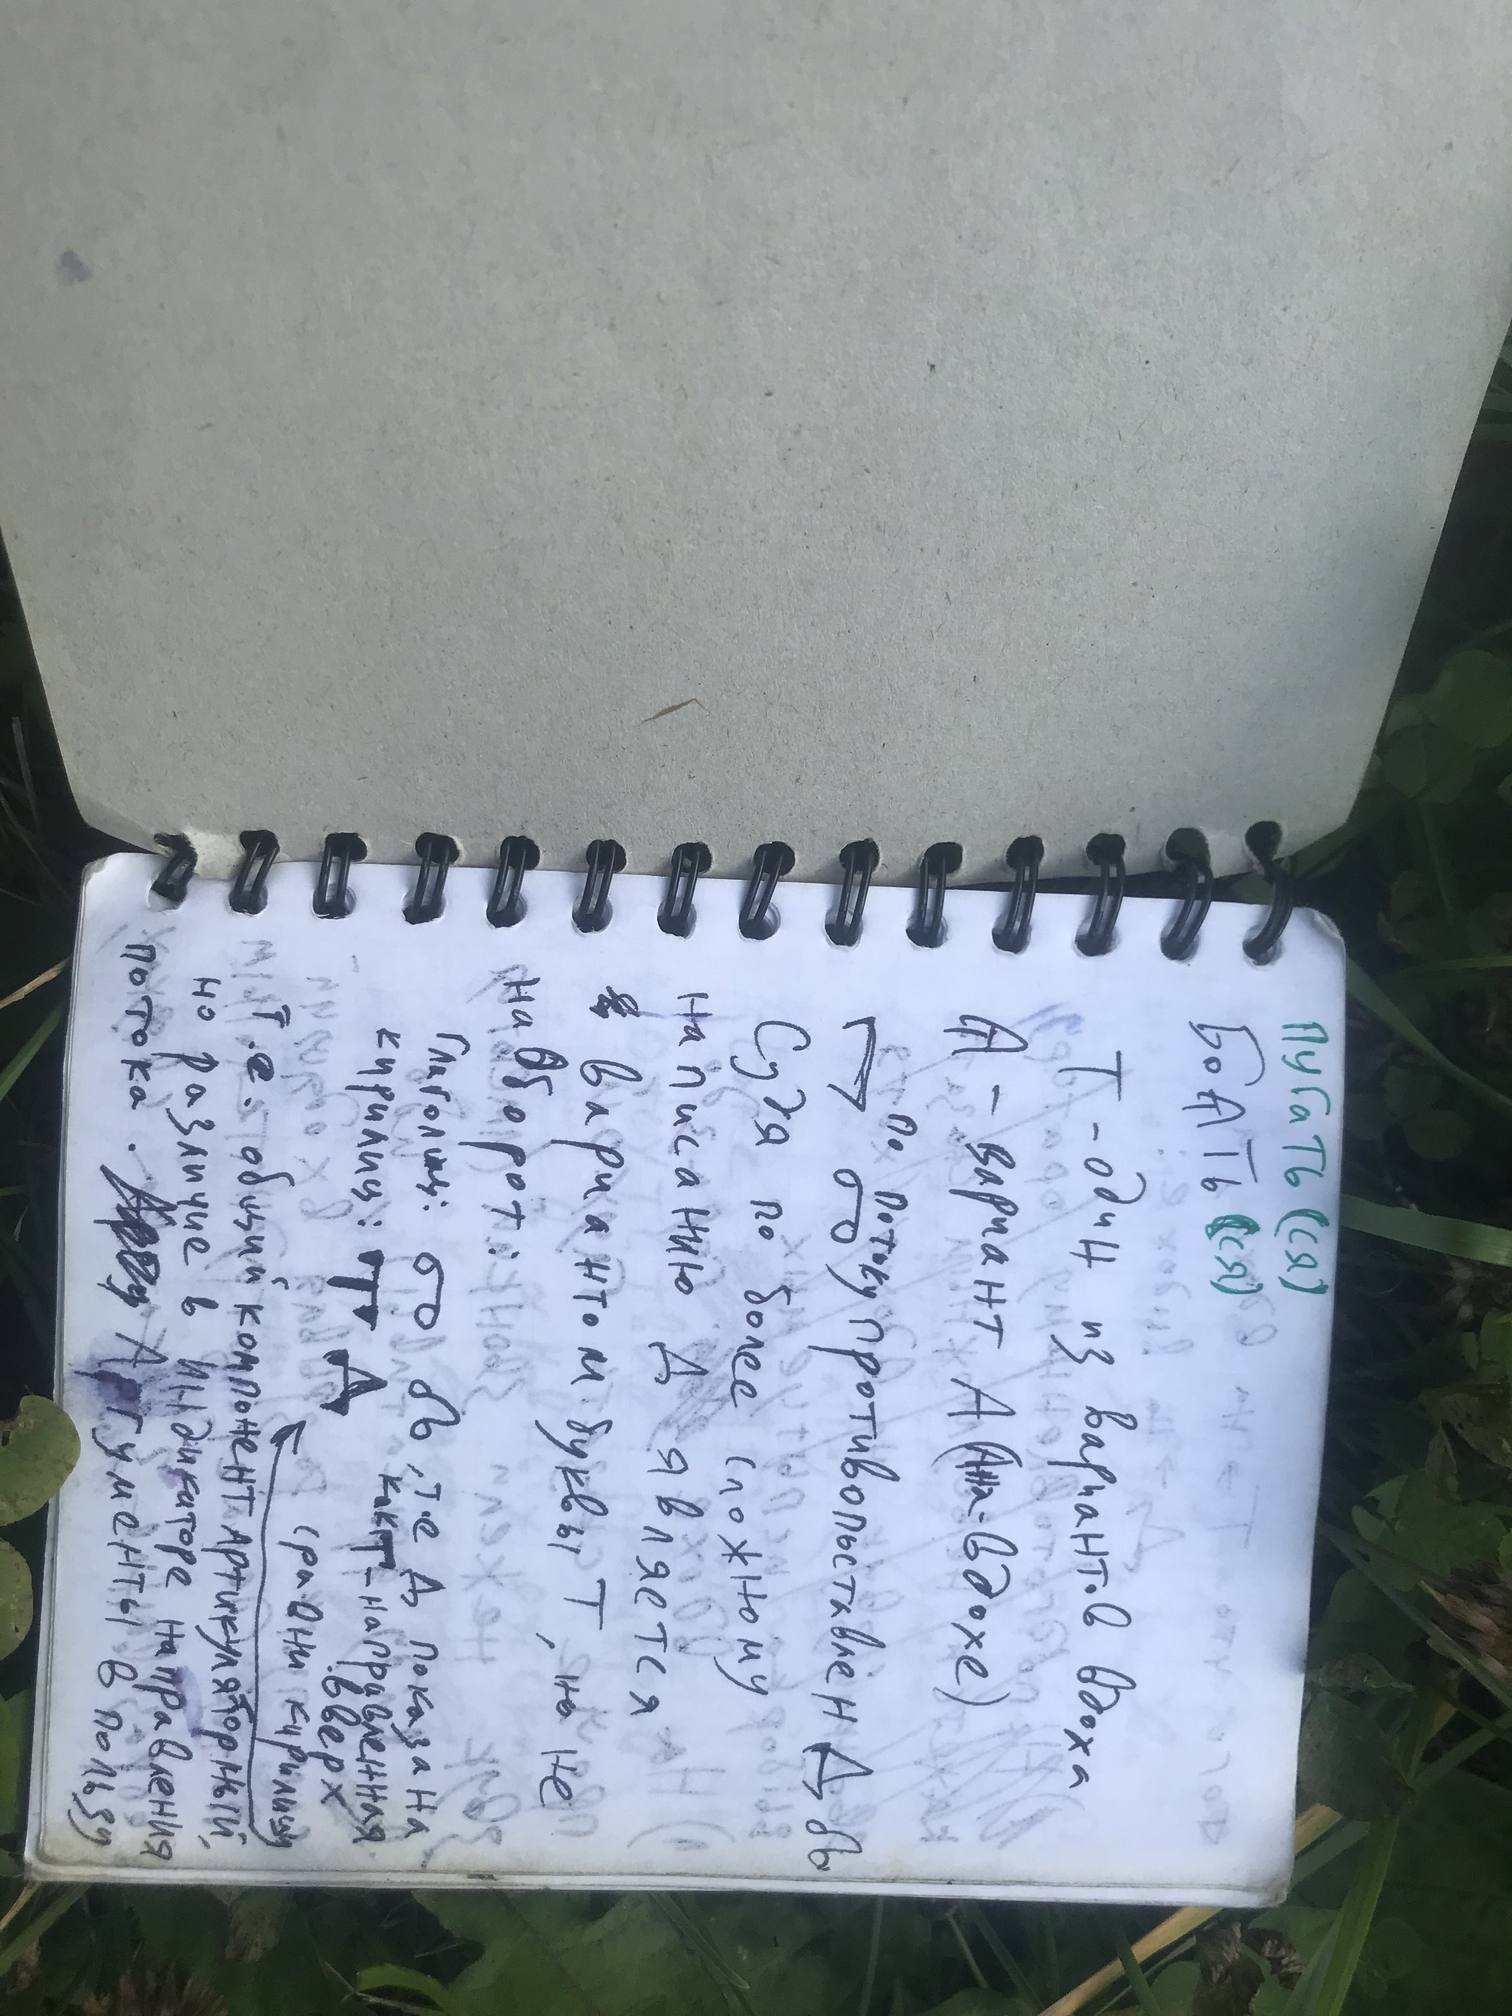 Пугать (ся)
БоАТЬ (ся)
Т - один из вариантов вдоха
А - вариант А (на вдохе)
по потоку противопоставлен Д
Судя по более сложному
написанию Д является
вариантом буквы Т, но не
наоборот:
Глаголица: , т.е Д показана
кирилиц: Т Д как Т - направленная
вверх
сравни кирилицу
Т.е. общий компонент артикуляторный,
но различие в индикаторе направления
потока. Аргументы в пользу